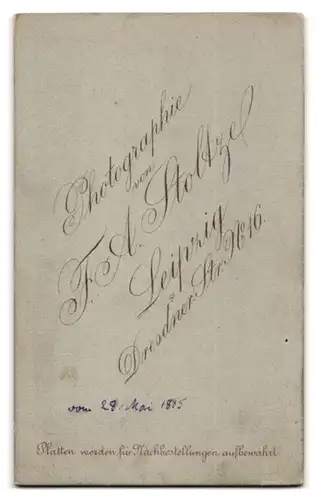 Photographie
von
F. A. Stoltze
Leipzig
Dresdner Str. No 16.
vom 28. Mai 1885
Platten werden für Nachbestellungen aufbewahrt.